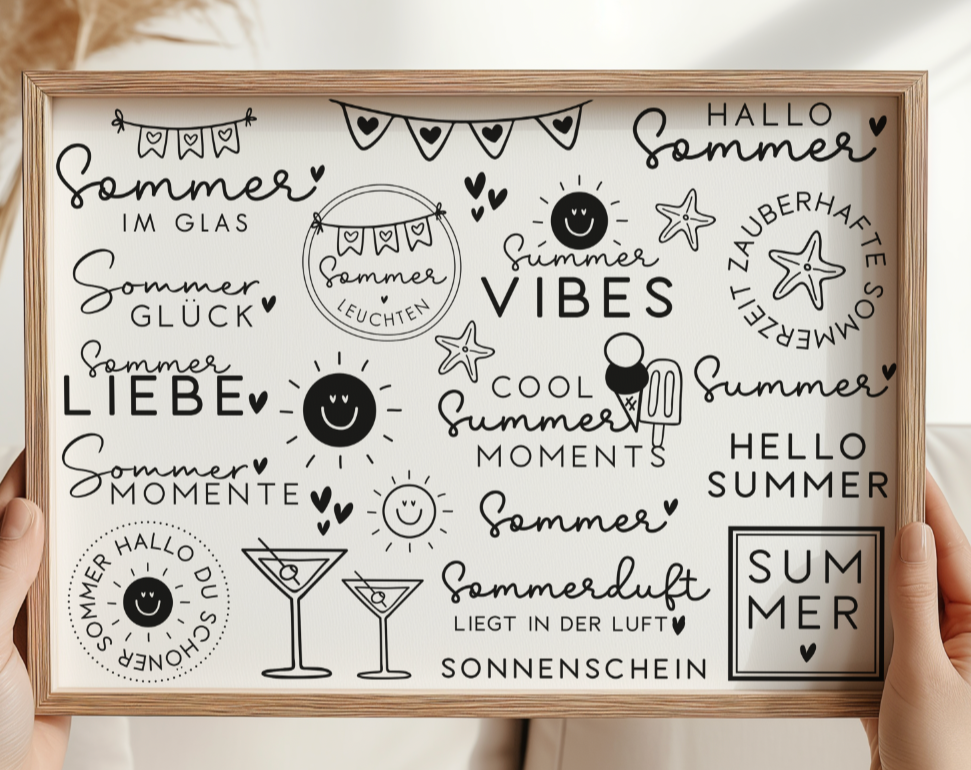 HALLO
Sommer
Sommer
IM GLAS
Sommer
LEUCHTEN
Summer
VIBES
ZAUBERHAFTE SOMMERZEIT
Sommer
GLÜCK
Sommer
LIEBE
COOL
Summer
MOMENTS
Summer
HELLO
SUMMER
Sommer
MOMENTE
Sommer
HALLO DU SCHÖNER SOMMER
Sommerduft
LIEGT IN DER LUFT
SONNENSCHEIN
SUM
MER